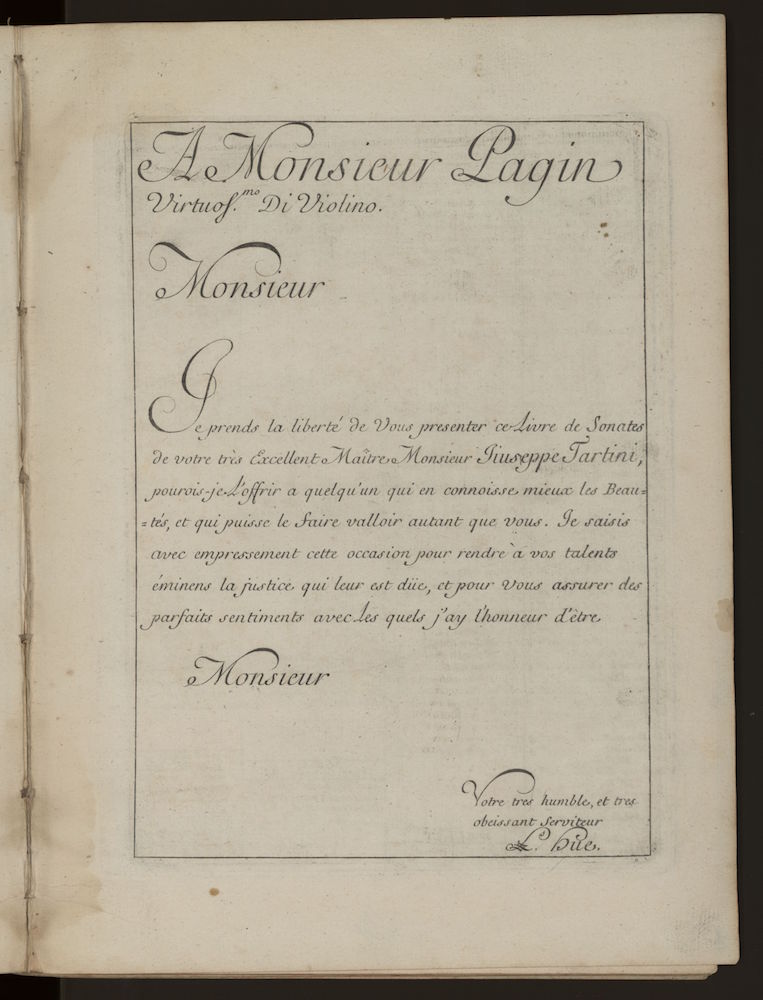 A Monsieur Pagin
Virtuos.mo Di Violino.
Monsieur
Je prends la liberté de Vous presenter ce Livre de Sonates
de votre très Excellent Maître Monsieur Giuseppe Tartini,
pourois-je L'offrir a quelqu'un qui en connoisse mieux les Beau=
=tés, et qui puisse le faire valloir autant que vous. Je saisis
avec empressement cette occasion pour rendre à vos talents
éminens la justice qui leur est düe, et pour Vous assurer des
parfaits sentiments avec Les quels j'ay l'honneur d'être
Monsieur
Votre tres humble, et tres
obeissant Serviteur
Hüe.